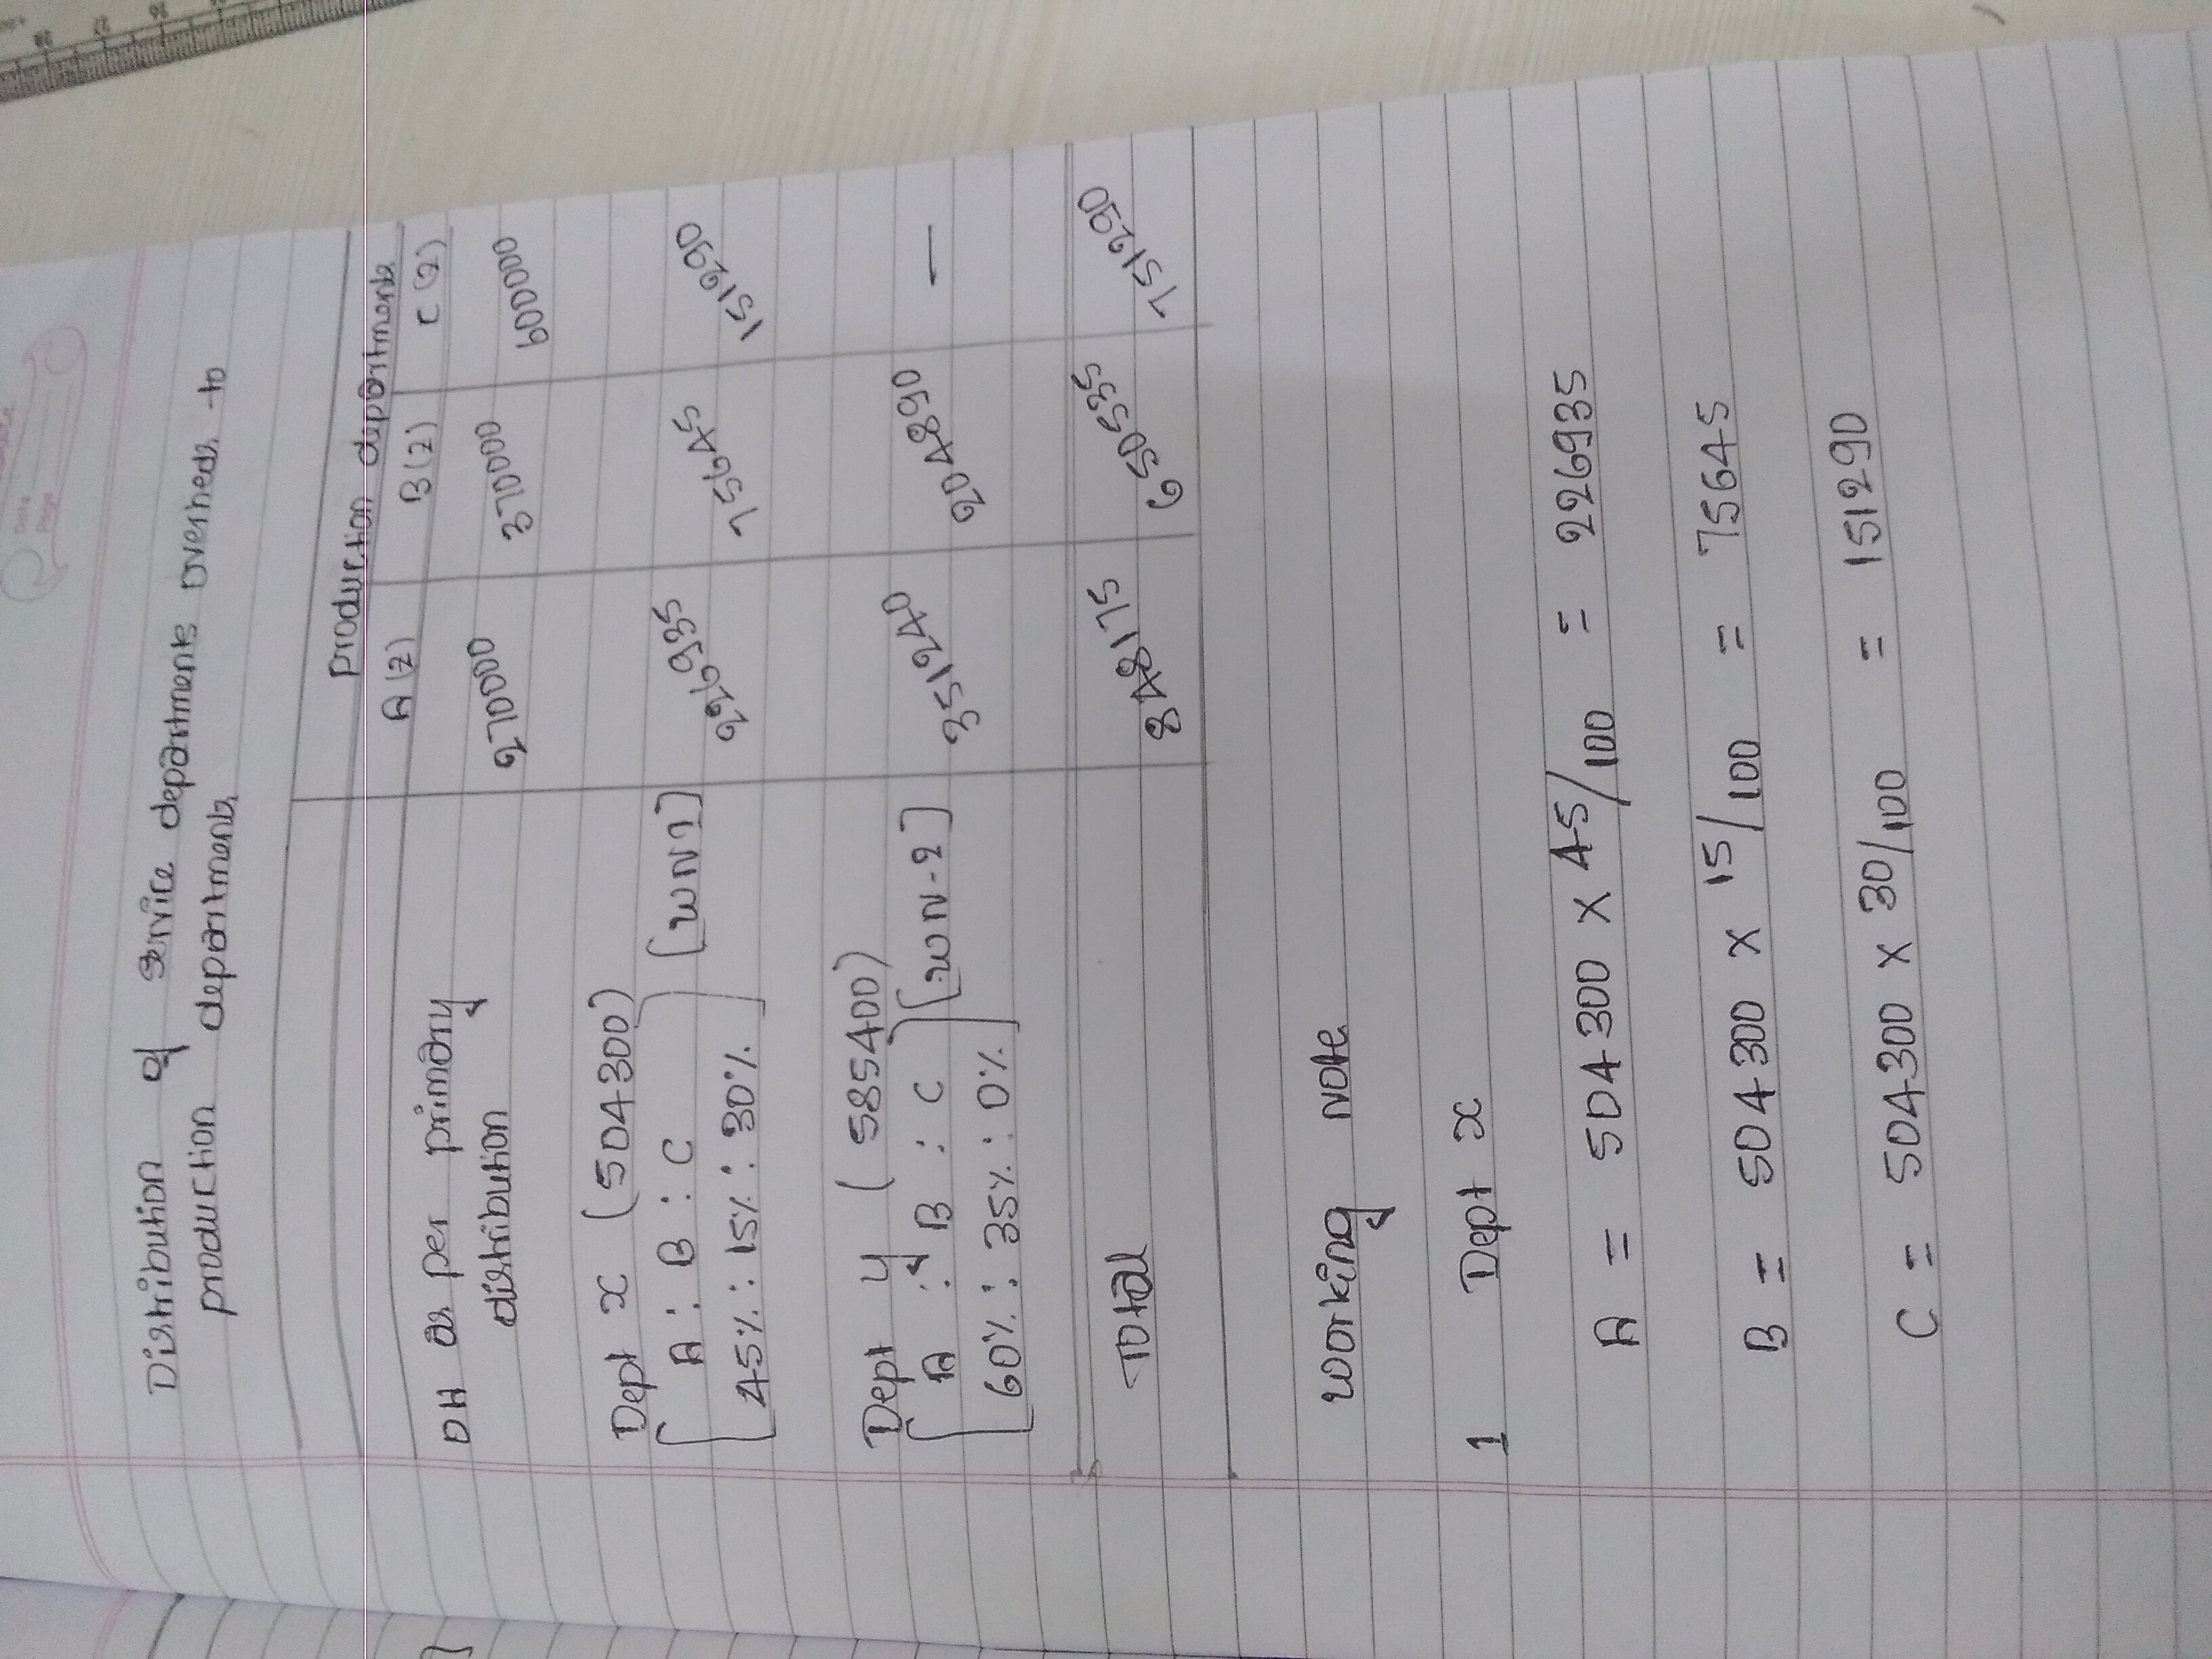 Date
Page
Distribution of service departments overheads to
production departments
Production departments
A (₹) B (₹) C (₹)
OH as per primary 270000 370000 600000
distribution
Dept x (504300)
A : B : C [WN1] 226935 75645 151290
45% : 15% : 30%
Dept y (585400)
A : B : C [WN-2] 351240 204890 —
60% : 35% : 0%
Total 848175 650535 751290
Working Note
1 Dept x
A = 504300 x 45/100 = 226935
B = 504300 x 15/100 = 75645
C = 504300 x 30/100 = 151290